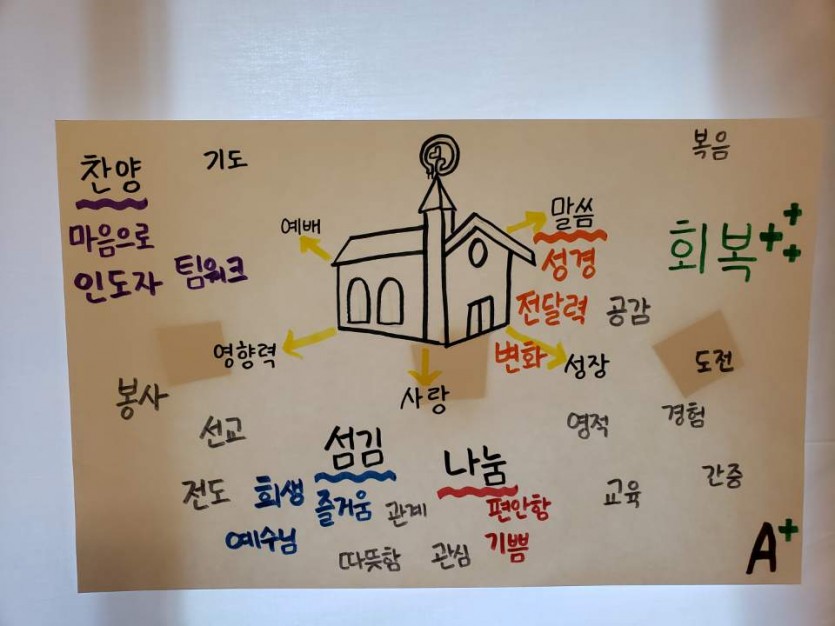 찬양
기도
복음
마음으로
인도자 팀워크
예배
말씀
성경
전달력 공감
회복+++
변화 성장
도전
영향력
사랑
봉사
선교
영적
경험
섬김
나눔
전도
희생
즐거움
관계
편안함
교육
간증
예수님
따뜻함
관심
기쁨
A+